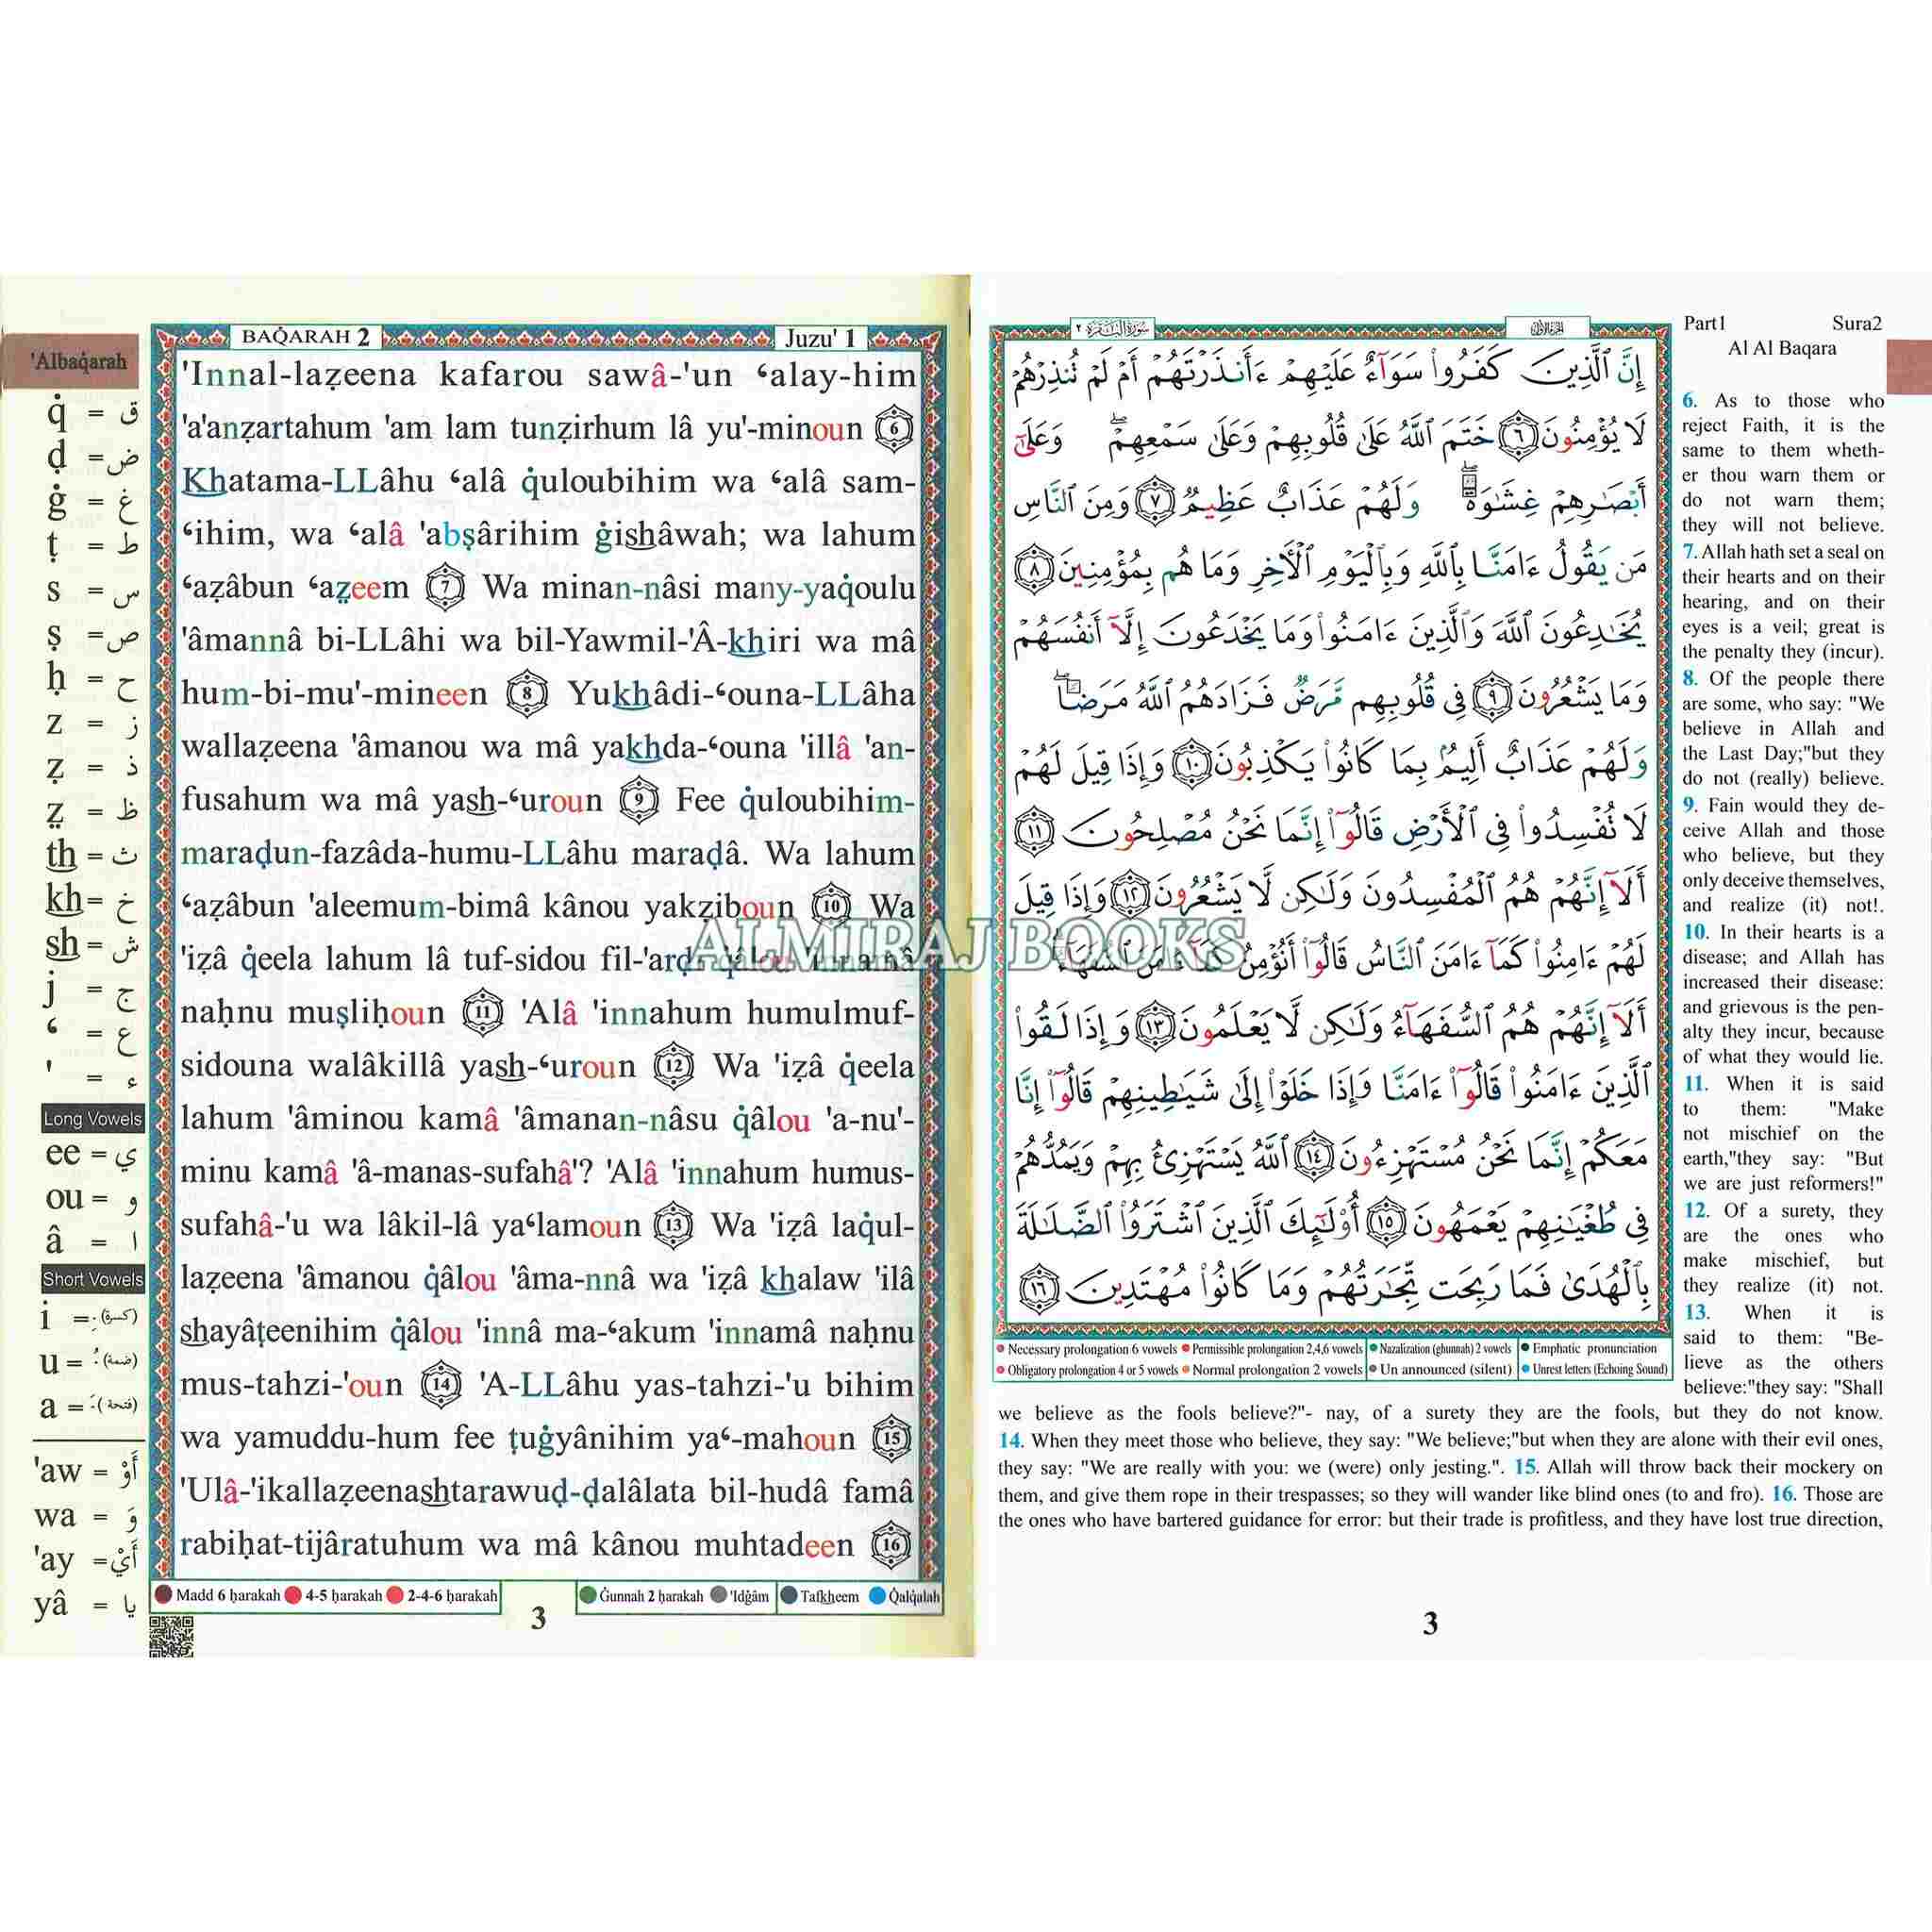 BAQ̇ARAH 2
Juzu' 1
'Albaq̇arah
q̇ = ق
ḍ = ض
ġ = غ
ṭ = ط
s = س
ṣ = ص
ḥ = ح
z = ز
ẓ = ذ
ẓ̤ = ظ
th = ث
kh = خ
sh = ش
j = ج
ʻ = ع
' = ء
Long Vowels
ee = ي
ou = و
â = ا
Short Vowels
i = (كسرة)
u = (ضمة)
a = (فتحة)
'aw = أَوْ
wa = وَ
'ay = أَيْ
yâ = يا
'Innal-laẓeena kafarou sawâ-'un ʻalay-him
'a'anẓartahum 'am lam tunẓirhum lâ yu'-minoun 6
Khatama-LLâhu ʻalâ q̇uloubihim wa ʻalâ sam-
ʻihim, wa ʻalâ 'abṣârihim ġishâwah; wa lahum
ʻaẓâbun ʻaẓ̤eem 7 Wa minan-nâsi many-yaq̇oulu
'âmannâ bi-LLâhi wa bil-Yawmil-'Â-khiri wa mâ
hum-bi-mu'-mineen 8 Yukhâdi-ʻouna-LLâha
wallaẓeena 'âmanou wa mâ yakhda-ʻouna 'illâ 'an-
fusahum wa mâ yash-ʻuroun 9 Fee q̇uloubihim-
maraḍun-fazâda-humu-LLâhu maraḍâ. Wa lahum
ʻaẓâbun 'aleemum-bimâ kânou yakẓiboun 10 Wa
'iẓâ q̇eela lahum lâ tuf-sidou fil-'arḍi q̇âlou 'innamâ
naḥnu muṣliḥoun 11 'Alâ 'innahum humulmuf-
sidouna walâkillâ yash-ʻuroun 12 Wa 'iẓâ q̇eela
lahum 'âminou kamâ 'âmanan-nâsu q̇âlou 'a-nu'-
minu kamâ 'â-manas-sufahâ'? 'Alâ 'innahum humus-
sufahâ-'u wa lâkil-lâ yaʻlamoun 13 Wa 'iẓâ laq̇ul-
laẓeena 'âmanou q̇âlou 'âma-nnâ wa 'iẓâ khalaw 'ilâ
shayâṭeenihim q̇âlou 'innâ ma-ʻakum 'innamâ naḥnu
mus-tahzi-'oun 14 'A-LLâhu yas-tahzi-'u bihim
wa yamuddu-hum fee ṭuġyânihim yaʻ-mahoun 15
'Ulâ-'ikallaẓeenashtarawuḍ-ḍalâlata bil-hudâ famâ
rabiḥat-tijâratuhum wa mâ kânou muhtadeen 16
Madd 6 ḥarakah 4-5 ḥarakah 2-4-6 ḥarakah
Ġunnah 2 ḥarakah 'Idġâm Tafkheem Q̇alq̇alah
3
ALMIRAJ BOOKS
سورة البقرة ٢
الجزء الأول
إِنَّ ٱلَّذِينَ كَفَرُوا۟ سَوَآءٌ عَلَيْهِمْ ءَأَنذَرْتَهُمْ أَمْ لَمْ تُنذِرْهُمْ
لَا يُؤْمِنُونَ ٦ خَتَمَ ٱللَّهُ عَلَىٰ قُلُوبِهِمْ وَعَلَىٰ سَمْعِهِمْ ۖ وَعَلَىٰٓ
أَبْصَـٰرِهِمْ غِشَـٰوَةٌ ۖ وَلَهُمْ عَذَابٌ عَظِيمٌ ٧ وَمِنَ ٱلنَّاسِ
مَن يَقُولُ ءَامَنَّا بِٱللَّهِ وَبِٱلْيَوْمِ ٱلْـَٔاخِرِ وَمَا هُم بِمُؤْمِنِينَ ٨
يُخَـٰدِعُونَ ٱللَّهَ وَٱلَّذِينَ ءَامَنُوا۟ وَمَا يَخْدَعُونَ إِلَّآ أَنفُسَهُمْ
وَمَا يَشْعُرُونَ ٩ فِى قُلُوبِهِم مَّرَضٌ فَزَادَهُمُ ٱللَّهُ مَرَضًا ۖ
وَلَهُمْ عَذَابٌ أَلِيمٌۢ بِمَا كَانُوا۟ يَكْذِبُونَ ١٠ وَإِذَا قِيلَ لَهُمْ
لَا تُفْسِدُوا۟ فِى ٱلْأَرْضِ قَالُوٓا۟ إِنَّمَا نَحْنُ مُصْلِحُونَ ١١
أَلَآ إِنَّهُمْ هُمُ ٱلْمُفْسِدُونَ وَلَـٰكِن لَّا يَشْعُرُونَ ١٢ وَإِذَا قِيلَ
لَهُمْ ءَامِنُوا۟ كَمَآ ءَامَنَ ٱلنَّاسُ قَالُوٓا۟ أَنُؤْمِنُ كَمَآ ءَامَنَ ٱلسُّفَهَآءُ ۗ
أَلَآ إِنَّهُمْ هُمُ ٱلسُّفَهَآءُ وَلَـٰكِن لَّا يَعْلَمُونَ ١٣ وَإِذَا لَقُوا۟
ٱلَّذِينَ ءَامَنُوا۟ قَالُوٓا۟ ءَامَنَّا وَإِذَا خَلَوْا۟ إِلَىٰ شَيَـٰطِينِهِمْ قَالُوٓا۟ إِنَّا
مَعَكُمْ إِنَّمَا نَحْنُ مُسْتَهْزِءُونَ ١٤ ٱللَّهُ يَسْتَهْزِئُ بِهِمْ وَيَمُدُّهُمْ
فِى طُغْيَـٰنِهِمْ يَعْمَهُونَ ١٥ أُو۟لَـٰٓئِكَ ٱلَّذِينَ ٱشْتَرَوُا۟ ٱلضَّلَـٰلَةَ
بِٱلْهُدَىٰ فَمَا رَبِحَت تِّجَـٰرَتُهُمْ وَمَا كَانُوا۟ مُهْتَدِينَ ١٦
Necessary prolongation 6 vowels Permissible prolongation 2,4,6 vowels Nazalization (ghunnah) 2 vowels Emphatic pronunciation
Obligatory prolongation 4 or 5 vowels Normal prolongation 2 vowels Un announced (silent) Unrest letters (Echoing Sound)
Part1 Sura2
Al Al Baqara
6. As to those who
reject Faith, it is the
same to them wheth-
er thou warn them or
do not warn them;
they will not believe.
7. Allah hath set a seal on
their hearts and on their
hearing, and on their
eyes is a veil; great is
the penalty they (incur).
8. Of the people there
are some, who say: "We
believe in Allah and
the Last Day;"but they
do not (really) believe.
9. Fain would they de-
ceive Allah and those
who believe, but they
only deceive themselves,
and realize (it) not!.
10. In their hearts is a
disease; and Allah has
increased their disease:
and grievous is the pen-
alty they incur, because
of what they would lie.
11. When it is said
to them: "Make
not mischief on the
earth,"they say: "But
we are just reformers!"
12. Of a surety, they
are the ones who
make mischief, but
they realize (it) not.
13. When it is
said to them: "Be-
lieve as the others
believe:"they say: "Shall
we believe as the fools believe?"- nay, of a surety they are the fools, but they do not know.
14. When they meet those who believe, they say: "We believe;"but when they are alone with their evil ones,
they say: "We are really with you: we (were) only jesting.". 15. Allah will throw back their mockery on
them, and give them rope in their trespasses; so they will wander like blind ones (to and fro). 16. Those are
the ones who have bartered guidance for error: but their trade is profitless, and they have lost true direction,
3